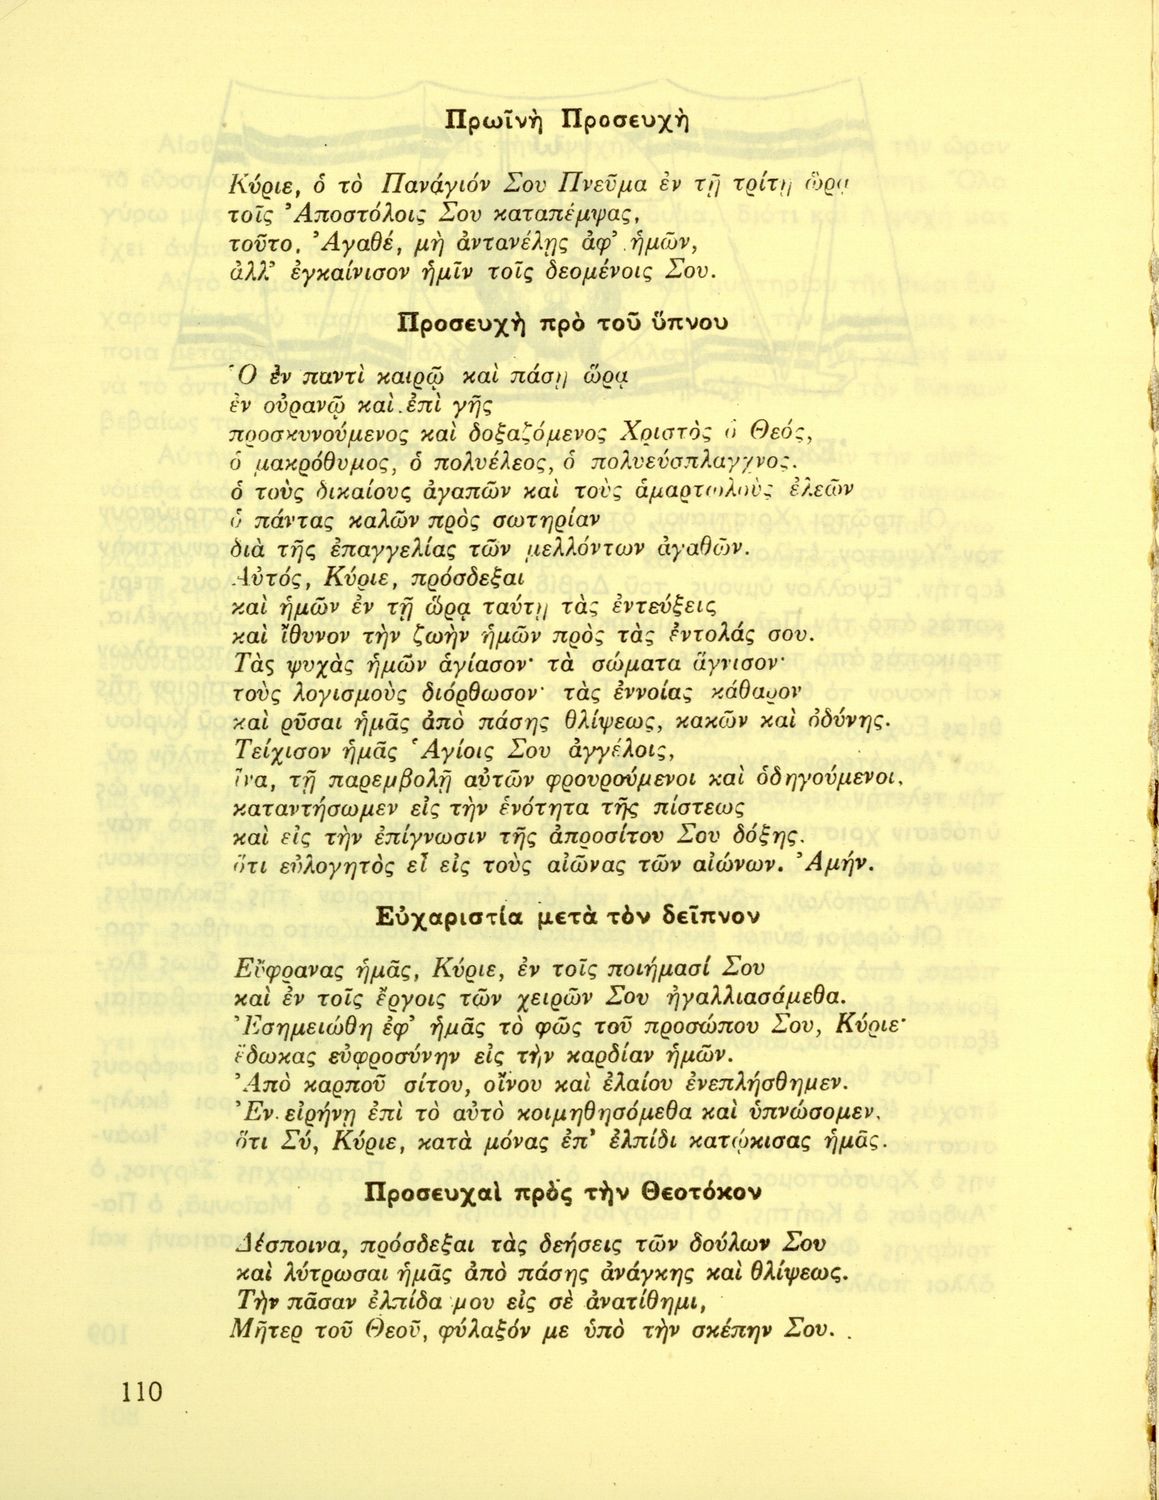 Πρωῖνὴ Προσευχὴ
Κύριε, ὁ τὸ Πανάγιόν Σου Πνεῦμα ἐν τῇ τρίτῃ ὥρᾳ
τοῖς Ἀποστόλοις Σου καταπέμψας,
τοῦτο, Ἀγαθέ, μὴ ἀντανέλῃς ἀφ' ἡμῶν,
ἀλλ' ἐγκαίνισον ἡμῖν τοῖς δεομένοις Σου.
Προσευχὴ πρὸ τοῦ ὕπνου
Ὁ ἐν παντὶ καιρῷ καὶ πάσῃ ὥρᾳ
ἐν οὐρανῷ καὶ ἐπὶ γῆς
προσκυνούμενος καὶ δοξαζόμενος Χριστὸς ὁ Θεός,
ὁ μακρόθυμος, ὁ πολυέλεος, ὁ πολυεύσπλαγχνος.
ὁ τοὺς δικαίους ἀγαπῶν καὶ τοὺς ἁμαρτωλοὺς ἐλεῶν
ὁ πάντας καλῶν πρὸς σωτηρίαν
διὰ τῆς ἐπαγγελίας τῶν μελλόντων ἀγαθῶν.
Αὐτός, Κύριε, πρόσδεξαι
καὶ ἡμῶν ἐν τῇ ὥρᾳ ταύτῃ τὰς ἐντεύξεις
καὶ ἴθυνον τὴν ζωὴν ἡμῶν πρὸς τὰς ἐντολάς σου.
Τὰς ψυχὰς ἡμῶν ἁγίασον· τὰ σώματα ἅγνισον·
τοὺς λογισμοὺς διόρθωσον· τὰς ἐννοίας κάθαρον
καὶ ρῦσαι ἡμᾶς ἀπὸ πάσης θλίψεως, κακῶν καὶ ὀδύνης.
Τείχισον ἡμᾶς Ἁγίοις Σου ἀγγέλοις,
ἵνα, τῇ παρεμβολῇ αὐτῶν φρουρούμενοι καὶ ὁδηγούμενοι,
καταντήσωμεν εἰς τὴν ἑνότητα τῆς πίστεως
καὶ εἰς τὴν ἐπίγνωσιν τῆς ἀπροσίτου Σου δόξης.
ὅτι εὐλογητὸς εἶ εἰς τοὺς αἰῶνας τῶν αἰώνων. Ἀμήν.
Εὐχαριστία μετὰ τὸν δεῖπνον
Εὔφρανας ἡμᾶς, Κύριε, ἐν τοῖς ποιήμασί Σου
καὶ ἐν τοῖς ἔργοις τῶν χειρῶν Σου ἠγαλλιασάμεθα.
Ἐσημειώθη ἐφ' ἡμᾶς τὸ φῶς τοῦ προσώπου Σου, Κύριε·
ἔδωκας εὐφροσύνην εἰς τὴν καρδίαν ἡμῶν.
Ἀπὸ καρποῦ σίτου, οἴνου καὶ ἐλαίου ἐνεπλήσθημεν.
Ἐν εἰρήνῃ ἐπὶ τὸ αὐτὸ κοιμηθησόμεθα καὶ ὑπνώσομεν,
ὅτι Σύ, Κύριε, κατὰ μόνας ἐπ' ἐλπίδι κατῴκισας ἡμᾶς.
Προσευχαὶ πρὸς τὴν Θεοτόκον
Δέσποινα, πρόσδεξαι τὰς δεήσεις τῶν δούλων Σου
καὶ λύτρωσαι ἡμᾶς ἀπὸ πάσης ἀνάγκης καὶ θλίψεως.
Τὴν πᾶσαν ἐλπίδα μου εἰς σὲ ἀνατίθημι,
Μῆτερ τοῦ Θεοῦ, φύλαξόν με ὑπὸ τὴν σκέπην Σου.
110